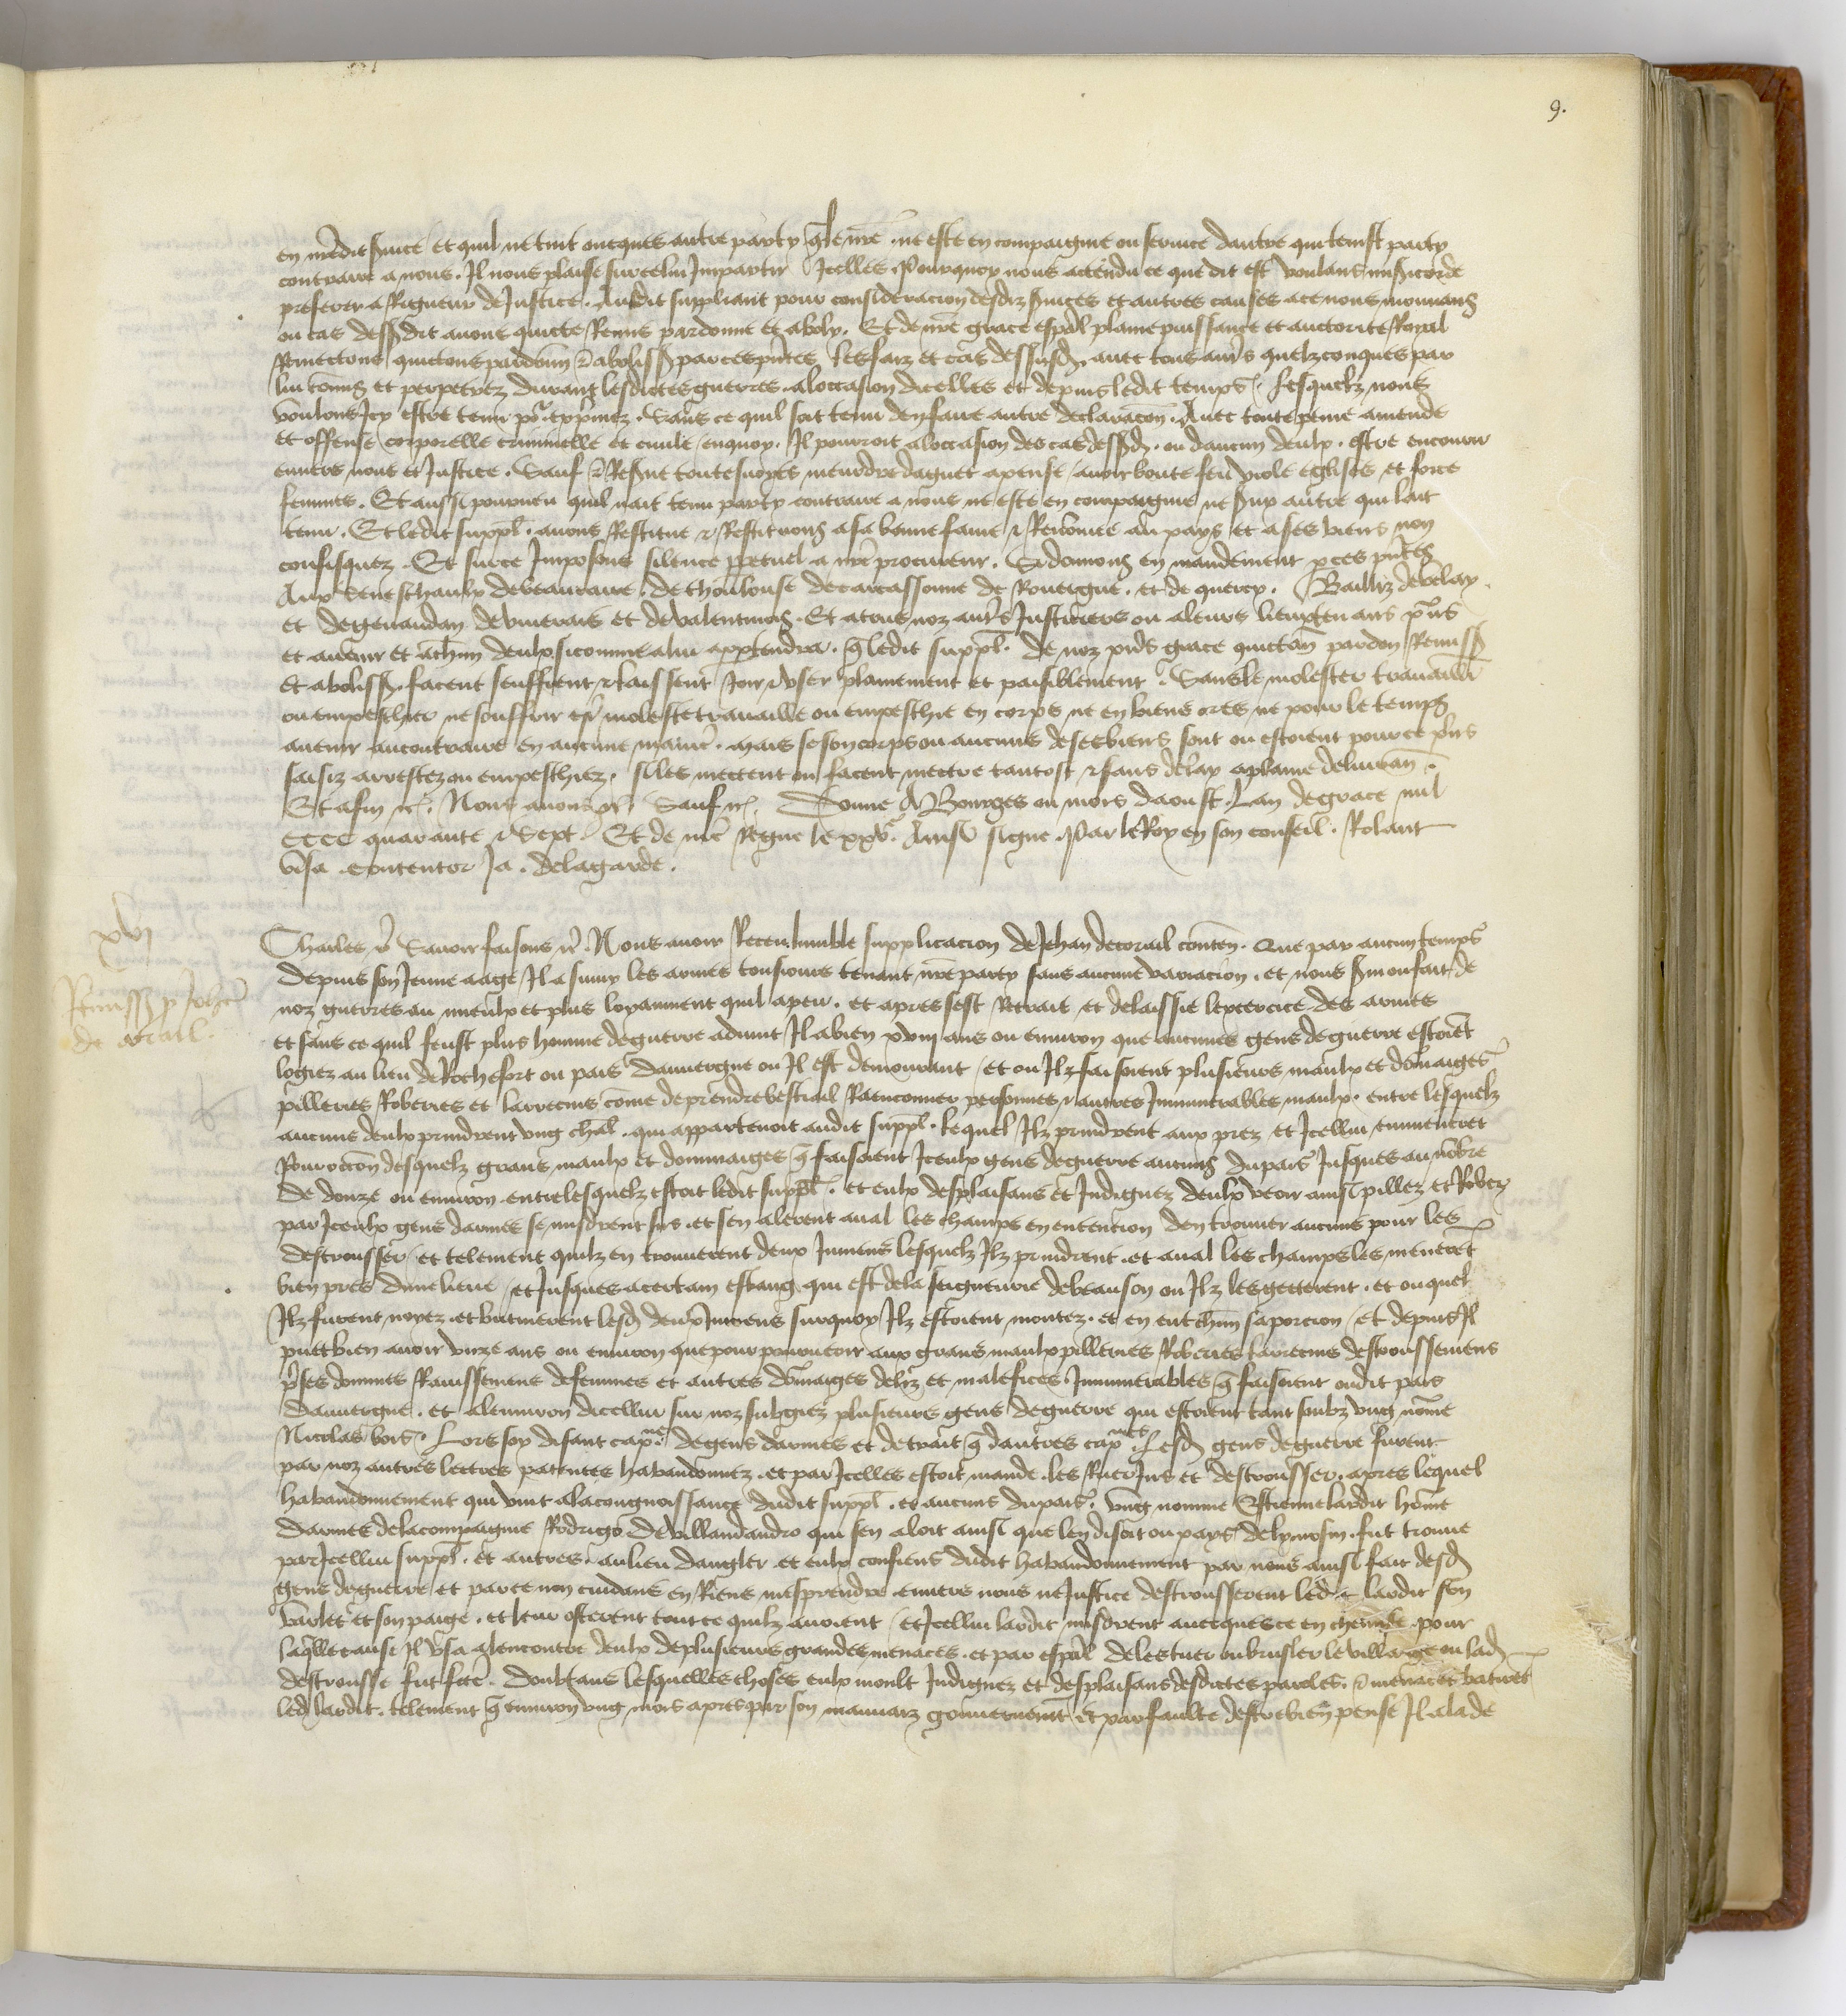 9.
en nredit svice et quil ne tint oncques autre party q le nre . ne este en compaignie ou service dautre qui tenist party
contraire a nous . Il nous plaise sur celui Impartir Icelles . Pourquoy nous actendu ce que dit est voulans misicorde
preferer a Rigueur de Justice . Audit suppliant pour consideracion desdiz svices et autres causes a ce nous mouvans
ou cas dessdit avons quicte Remis pardonne et aboly . Et de nre grace espal plaine puissance et auctorite Royal
Remectons quictons pardonn & aboliss par ces pntes les faiz et cas dessusd . avec tous autrs quelzconques par
lui comis et perpetrez durant lesdictes guerres . a loccasion dicelles et depuis ledit temps . Lesquelz nous
voulons Icy estre tenu pr expmez . Sans ce quil soit tenu den faire autre declaracon . Avec toute peine amende
et offense corporelle criminelle et civile enquoy . Il pourroit a loccasion des cas dessd . ou daucun deulx . estre encouru
envers nous et Justice . Sauf & Reserve toutesvoyes meurdre daguet apense avoir boute feu viole eglises et force
femmes . Et aussi pourveu quil nait tenu party contraire a nous ne este en compaignie ne svy autre qui lait
tenu . Et ledit suppl . avons Restitue & Restituons a sa bonne fame & Renomee au pays et a ses biens non
confisquez . Et sur ce Imposons silence ppetuel a nre procureur . Si donnons en mandement p ces pntes
Aux Seneschaulx de beaucaire . de thoulouse de carcassonne de Rouergue . et de quercy . Bailliz de velay .
et de gevaudan de vivarais et de valentinois . Et a tous noz autrs Justiciers ou a leurs lieuxtenans pns
et avenir et a chun deulx si comme a lui appartendra . q ledit suppl . de noz pns grace quictan pardon Remiss
Et aboliss . facent seuffrent & laissent Joir & user plainement et paisiblement . Sans le molester travailler
ou empescher ne souffrir estre moleste travaille ou empeschie en corps ne en biens ores ne pour le temps
avenir au contraire en aucune manier . mais se son corps ou aucuns de ses biens sont ou estoient pour ce pns
saisiz arrestez ou empeschiez . si les mectent ou facent mectre tantost & sans delay a plaine delivran .
Et afin etc . Nous avons etc Sauf etc Donne A Bourges ou mois daoust . Lan de grace mil
CCCC quarante & Sept . Et de nre Regne le xxve . Ainsi signe . Par le Roy en son conseil . Rolant
Visa . Contentor Ja . delagarde .
xvj
Remiss p Jehan
de corail .
Charles etc Savoir faisons etc Nous avoir Receu humble supplicacion de Jehan de corail conten . Que par aucun temps
depuis son Jeune aage Il a suivy les armes tousiours tenant nre party sans aucune variacion . et nous svi ou fait de
noz guerres au mieulx et plus loyaument quil a peu . et apres sest Retrait et delaissie lexcercice des armes
et sans ce quil feust plus homme de guerre advint Il a bien xviij ans ou environ que aucunes gens de guerre estoiet
logiez au lieu de Rochefort ou pais dauvergne ou Il est demourant et ou Ilz faisoient plusieurs maulx et domaiges
pilleries Roberies et larrecins come de prendre bestiail Raenconner personnes & autres Innumerables maulx . entre lesquelz
aucuns deulx prindrent ung chal . qui appartenoit audit suppl . lequel Ilz prindrent aux prez et Icellui emmenerent
Pour occon desquelz grans maulx et dommaiges q faisoient Iceulx gens de guerre aucuns du pais Jusques au nobre
de douze ou environ entre lesquelz estoit ledit suppl . et eulx desplaisans et Indignez deulx veoir ainsi pillez et Robez
par Iceulx gens darmes se misdrent sus . et sen alerent aval les champs en entention den trouver aucuns pour les
destrousser et telement quilz en trouverent deux Jumens lesquelz Ilz prindrent . et aval les champs les meneret
bien pres dune lieue et Jusques a certain estang qui est de la seigneurie de beauson ou Ilz les getterent . et ouquel
Ilz furent noyez . et butinerent lesd deux Jumens surquoy Ilz estoient montez . et en eut chun sa porcion . Et depuis Il
puet bien avoir unze ans ou environ que pour pourveoir aux grans maulx pilleries Roberies larrecins destroussemens
prses dommes Ravissemens de femmes et autres domaiges deliz et malefices Innumerables q faisoient oudit pais
dauvergne . et a lenviron dicellui sur noz subgiez plusieurs gens de guerre qui estoient tant soubz ung nome
Nicolas bois . Lors soy disant capne de gens darmes et de trait q dautres capnes . Lesd gens de guerre furent
par noz autres lettres patentes habandonnez . et par Icelles estoit mande les Ruer Jus et destrousser . apres lequel
habandonnement qui vint a la congnoissance dudit suppl . et aucuns du pais . ung nomme Estienne lardit home
darmes de la compaignie Rodrigo de villandandro qui sen aloit ainsi que len disoit ou pays de lymosin . fut trouve
par Icellui suppl . et autres . au lieu dangler . et eulx confiens dudit habandonnement par nous ainsi fait desd
gens de guerre et par ce non cuidans en Riens mesprendre envers nous ne Justice destrousserent ledit lardit son
varlet et son paige . et leur osterent tout ce quilz avoient et Icellui lardit misdrent avecques ce en chemise . pour
laqlle cause Il usa a lencontre deulx de plusieurs grandes menaces . et par espal de les tuer ou brusler le villaige ou lad
destrousse fut fcte . doubtans lesquelles choses eulx moult Indignez et desplaisans desdictes paroles & menaces batiret
led lardit . telement q environ ung mois apres par son mauvaiz gouvernemt et par faulte destre bien pense Il ala de